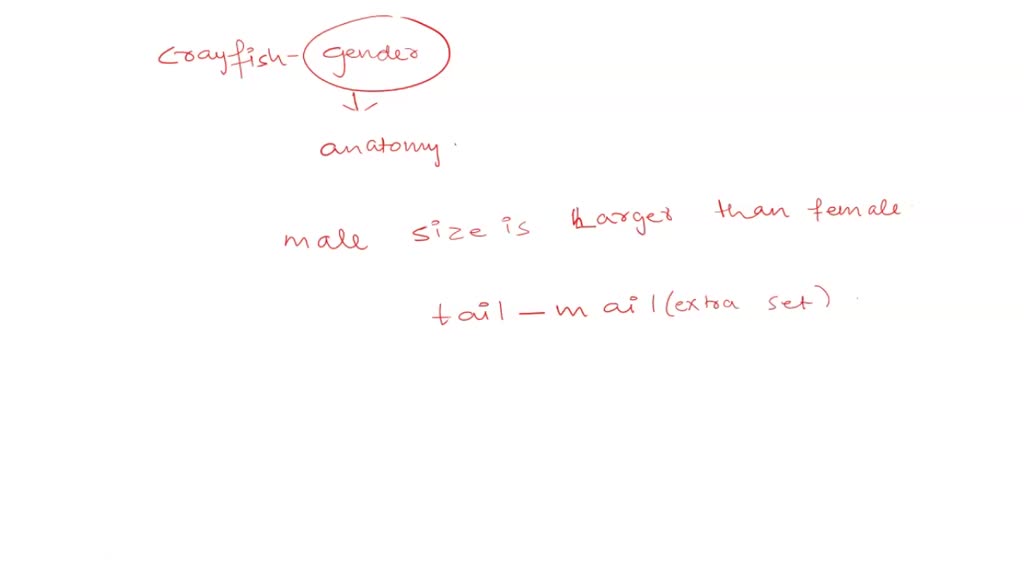 crayfish - gender
anatomy.
male size is Larger than female
tail - mail (extra set)